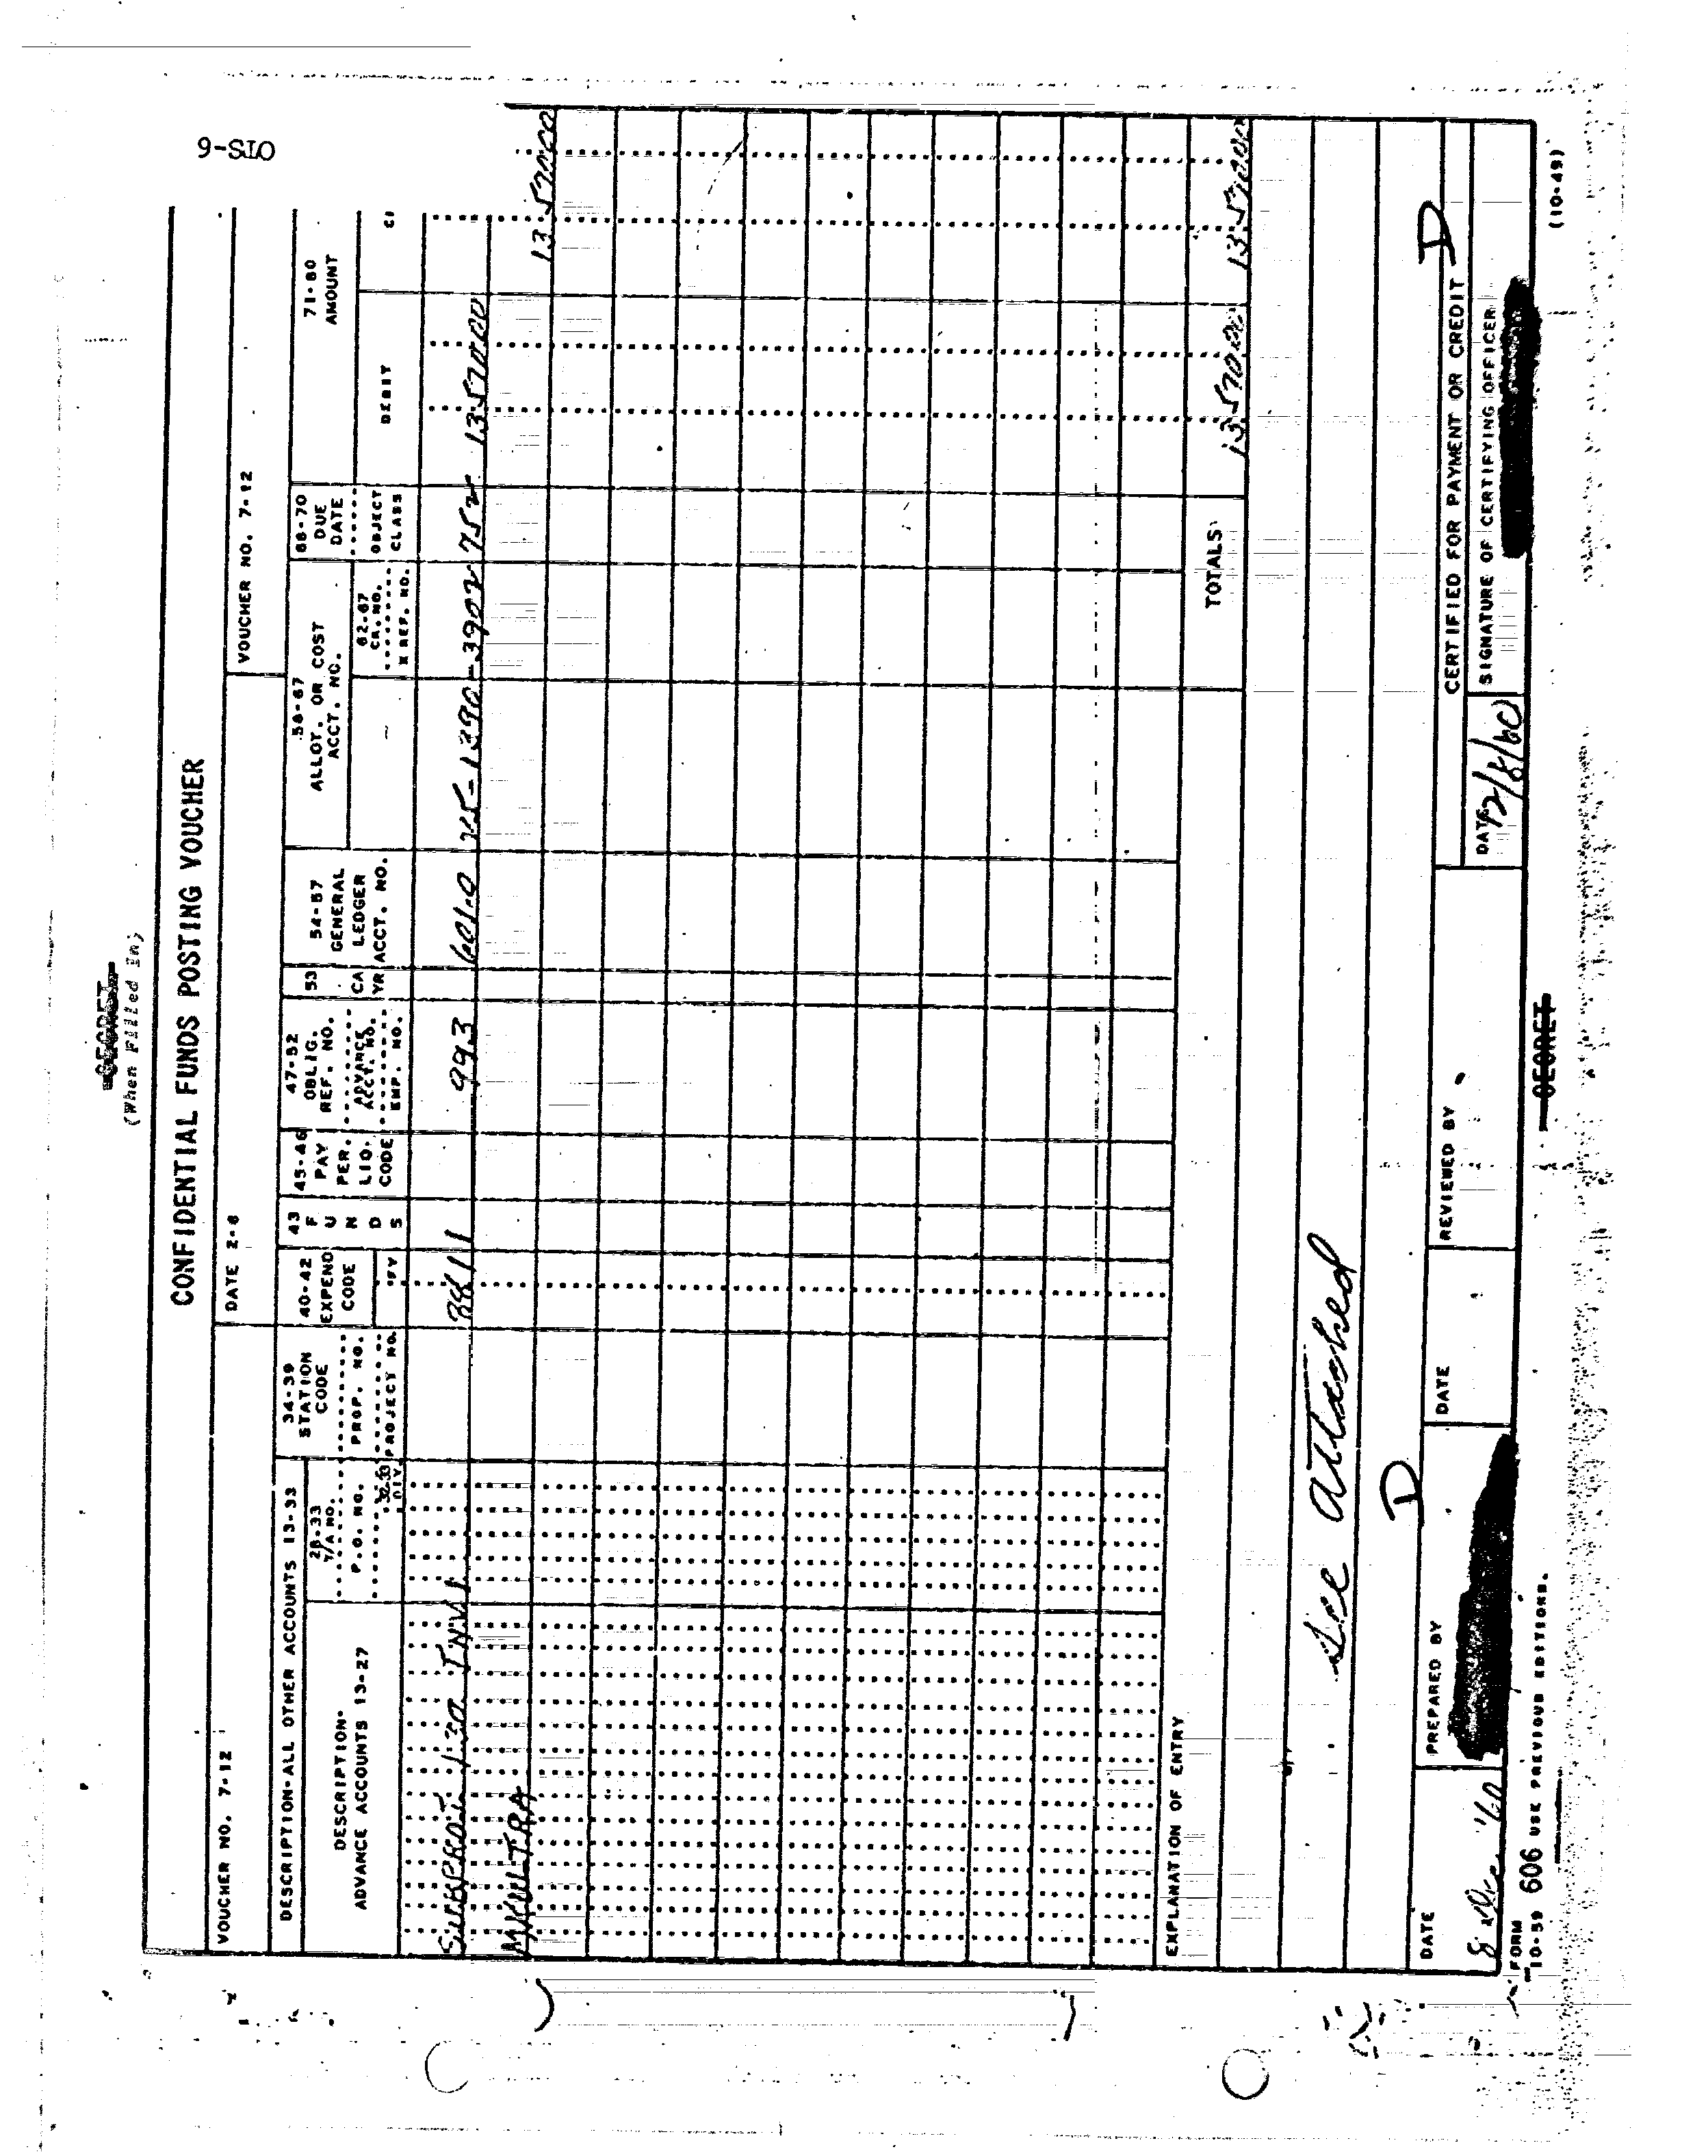 OTS-6
SECRET
(When Filled In)
CONFIDENTIAL FUNDS POSTING VOUCHER
VOUCHER NO. 7-12
DATE 2-6
VOUCHER NO. 7-12
DESCRIPTION-ALL OTHER ACCOUNTS 13-33
DESCRIPTION-
ADVANCE ACCOUNTS 13-27
28-33
T/A NO.
P.O. NO.
DIV.
34-39
STATION
CODE
PROP. NO.
PROJECT NO.
40-42
EXPEND
CODE
FY
43
F
U
N
D
S
45-46
PAY
PER.
LIQ.
CODE
47-52
OBLIG.
REF. NO.
ADVANCE
ACCT. NO.
EMP. NO.
53
CA
YR
54-57
GENERAL
LEDGER
ACCT. NO.
58-67
ALLOT. OR COST
ACCT. NO.
62-67
CK. NO.
X REF. NO.
68-70
DUE
DATE
OBJECT
CLASS
71-80
AMOUNT
DEBIT
SUBPROJ 130 INV 1 993 601.0 1390-3902 752 13 570 00
MKULTRA 13 570 00
TOTALS 13 570 00 13 570 00
EXPLANATION OF ENTRY
See Attached
D D
DATE
8 Dec. '60
PREPARED BY
DATE
REVIEWED BY
CERTIFIED FOR PAYMENT OR CREDIT
DATE
12/8/60
SIGNATURE OF CERTIFYING OFFICER
FORM
10-59 606 USE PREVIOUS EDITIONS.
SECRET
(10-49)